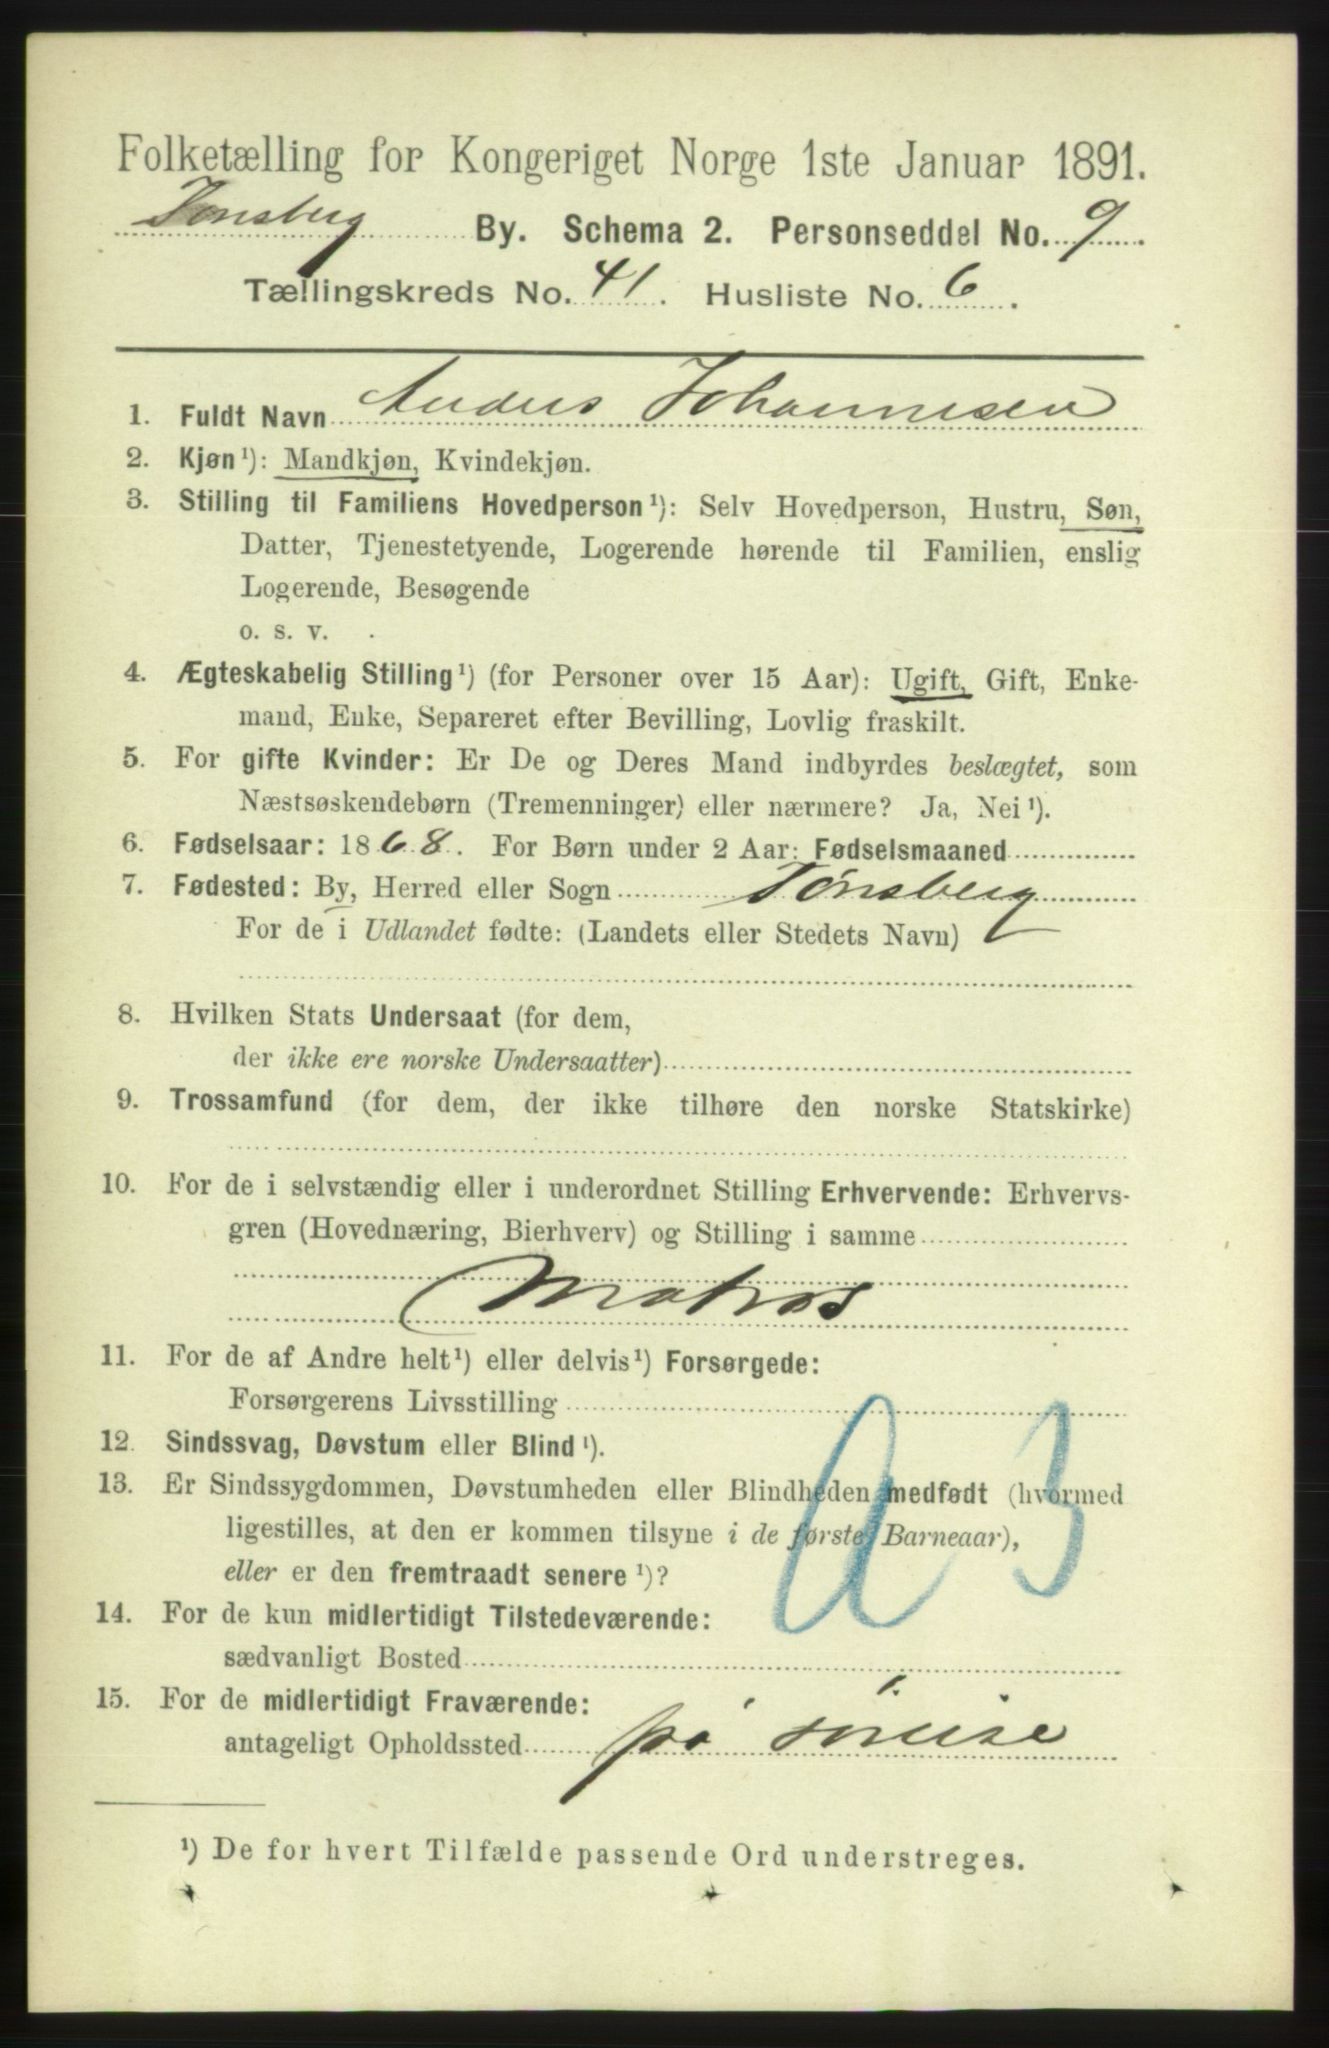 Folketælling for Kongeriget Norge 1ste Januar 1891.
Tønsberg By. Schema 2. Personseddel No. 9.
Tællingskreds No. 41. Husliste No. 6.
1. Fuldt Navn Anders Johannesen
2. Kjøn¹): Mandkjøn, Kvindekjøn.
3. Stilling til Familiens Hovedperson¹): Selv Hovedperson, Hustru, Søn,
Datter, Tjenestetyende, Logerende hørende til Familien, enslig
Logerende, Besøgende
o. s. v.
4. Ægteskabelig Stilling¹) (for Personer over 15 Aar): Ugift, Gift, Enke-
mand, Enke, Separeret efter Bevilling, Lovlig fraskilt.
5. For gifte Kvinder: Er De og Deres Mand indbyrdes beslægtet, som
Næstsøskendebørn (Tremenninger) eller nærmere? Ja, Nei¹).
6. Fødselsaar: 1868. For Børn under 2 Aar: Fødselsmaaned
7. Fødested: By, Herred eller Sogn Tønsberg
For de i Udlandet fødte: (Landets eller Stedets Navn)
8. Hvilken Stats Undersaat (for dem,
der ikke ere norske Undersaatter)
9. Trossamfund (for dem, der ikke tilhøre den norske Statskirke)
10. For de i selvstændig eller i underordnet Stilling Erhvervende: Erhvervs-
gren (Hovednæring, Bierhverv) og Stilling i samme
Matros
11. For de af Andre helt¹) eller delvis¹) Forsørgede:
Forsørgerens Livsstilling
12. Sindssvag, Døvstum eller Blind¹).
13. Er Sindssygdommen, Døvstumheden eller Blindheden medfødt (hvormed
ligestilles, at den er kommen tilsyne i de første Barneaar),
eller er den fremtraadt senere¹)?
14. For de kun midlertidigt Tilstedeværende:
sædvanligt Bosted
15. For de midlertidigt Fraværende:
antageligt Opholdssted på søreise
¹) De for hvert Tilfælde passende Ord understreges.